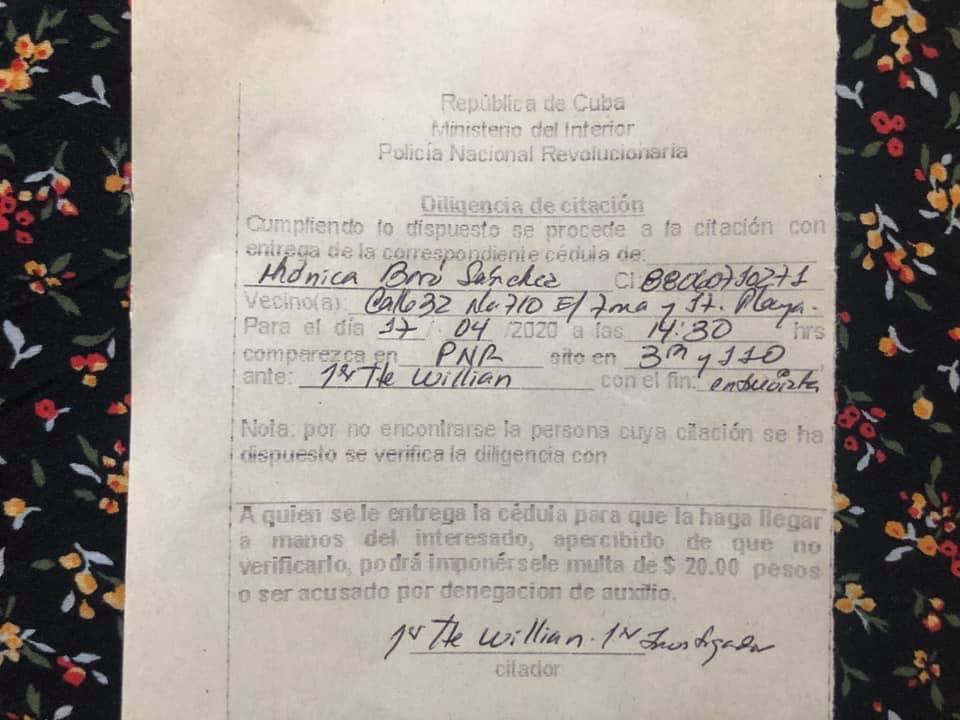 República de Cuba
Ministerio del Interior
Policía Nacional Revolucionaria
Diligencia de citación
Cumpliendo lo dispuesto se procede a la citación con
entrega de la correspondiente cédula de:
Mónica Baró Sánchez CI 88060710271
Vecino(a): Calle 32 No 710 E/ 7ma y 17. Playa.
Para el día 17 / 04 /2020 a las 14:30 hrs
comparezca en PNR sito en 3ra y 110
ante: 1er Tte Willian con el fin: entrevista
Nota: por no encontrarse la persona cuya citación se ha
dispuesto se verifica la diligencia con
A quien se le entrega la cédula para que la haga llegar
a manos del interesado, apercibido de que no
verificarlo, podrá imponérsele multa de $ 20.00 pesos
o ser acusado por denegacion de auxilio.
1er Tte Willian. 1er Investigador
citador